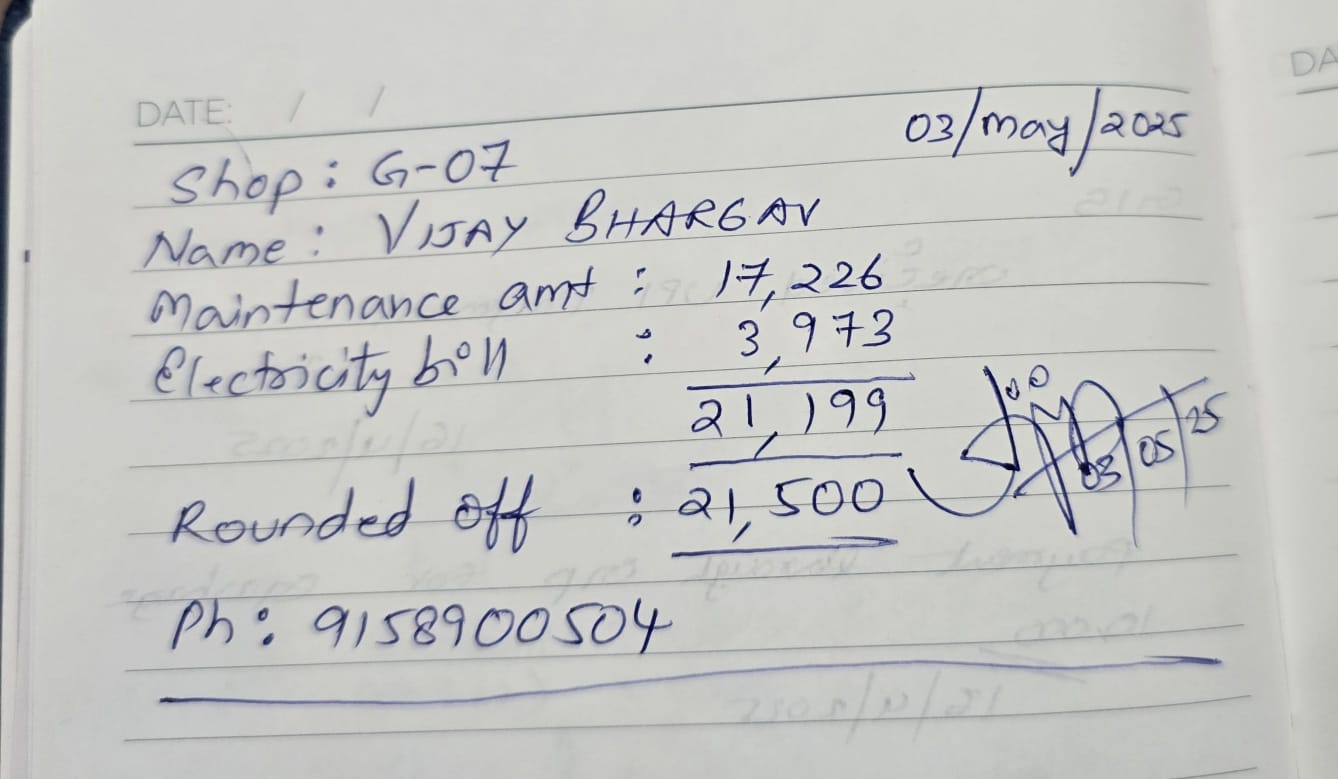 DA
DATE: / /
03/may/2025
Shop: G-07
Name: VIJAY BHARGAV
Maintenance amt : 17,226
Electricity bill : 3,973
21,199
Rounded off : 21,500
03/05/25
Ph: 9158900504